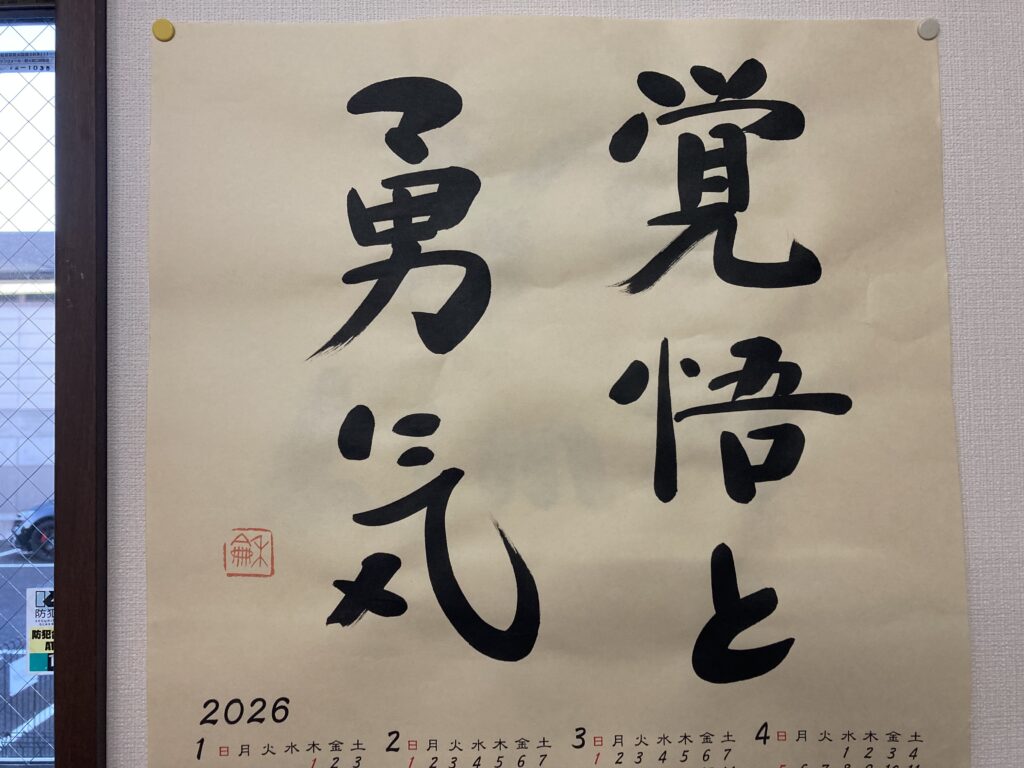 覚悟と
勇気
龢
2026
1 日 月 火 水 木 金 土
1 2 3
2 日 月 火 水 木 金 土
1 2 3 4 5 6 7
3 日 月 火 水 木 金 土
1 2 3 4 5 6 7
4 日 月 火 水 木 金 土
1 2 3 4
防犯